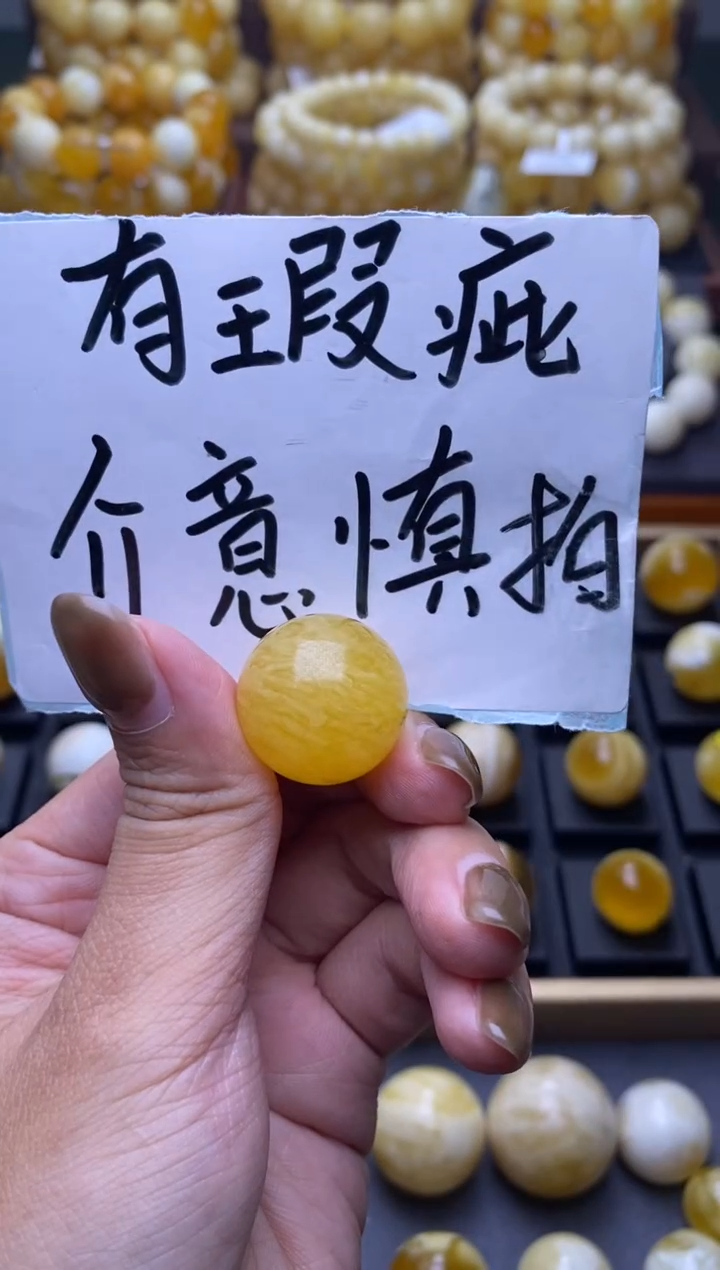 有瑕疵
介意慎拍